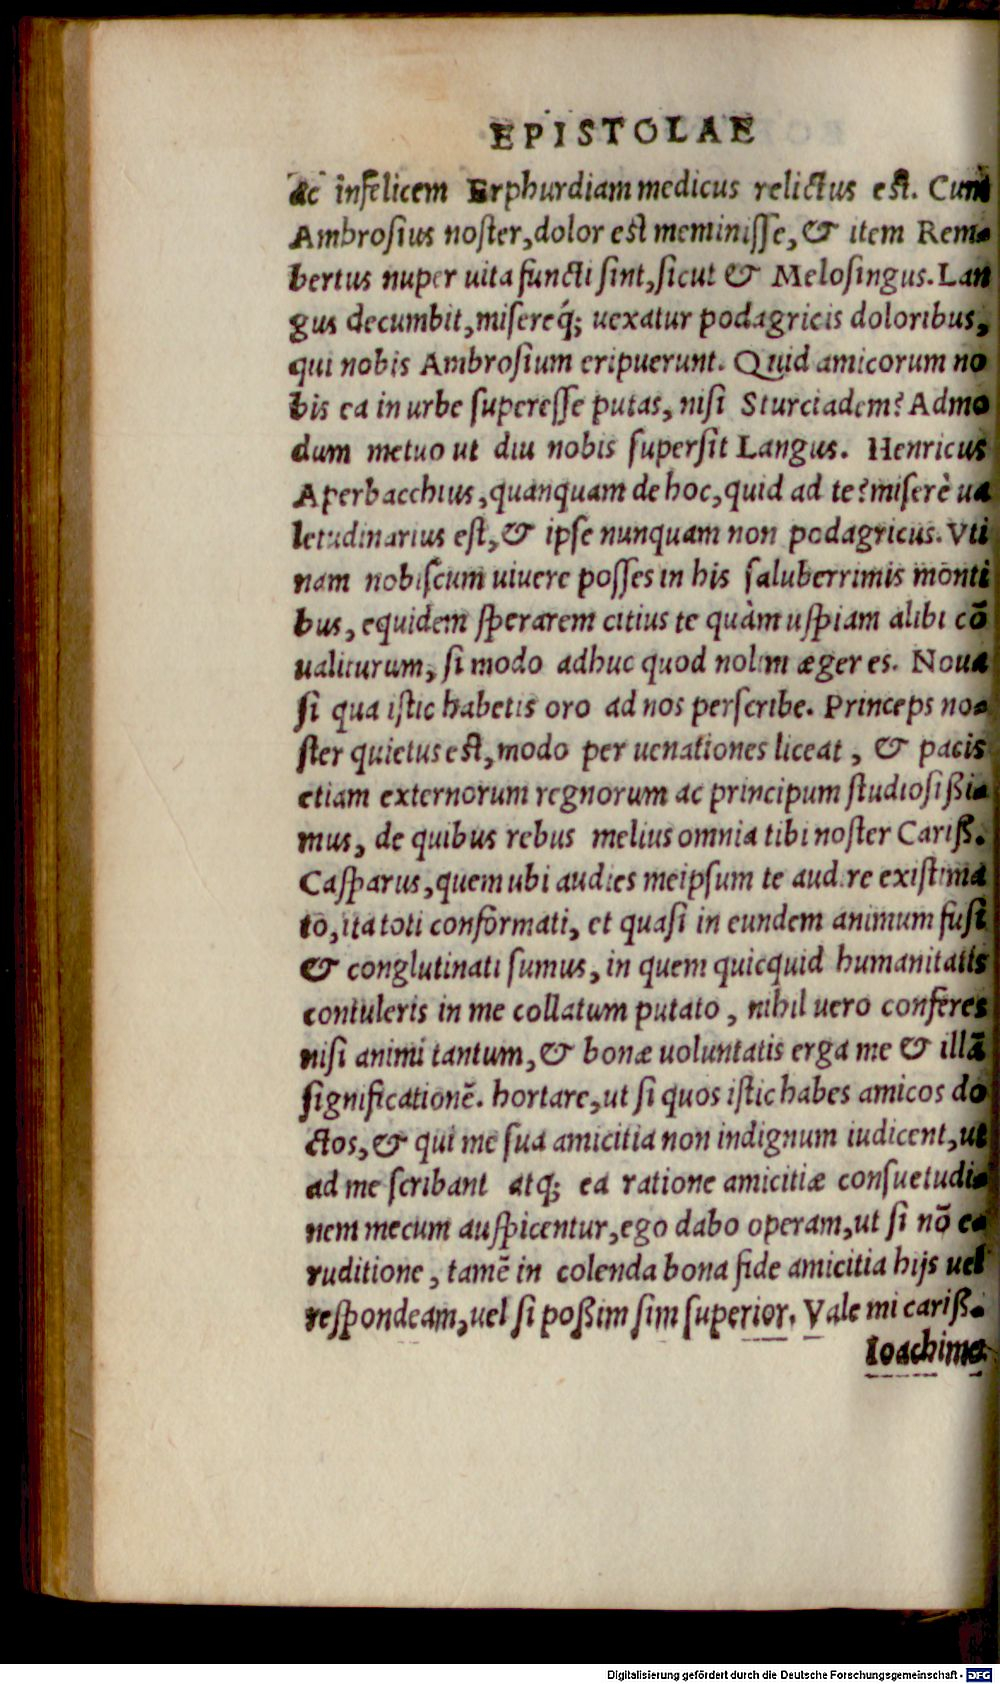 EPISTOLAE
ac infelicem Erphurdiam medicus relictus est. Cum
Ambrosius noster, dolor est meminisse, & item Rem-
bertus nuper uita functi sint, sicut & Melosingus. Lan
gus decumbit, misereq́; uexatur podagricis doloribus,
qui nobis Ambrosium eripuerunt. Quid amicorum no
bis ea in urbe superesse putas, nisi Sturciadem? Admo
dum metuo ut diu nobis supersit Langus. Henricus
Aperbacchius, quanquam de hoc, quid ad te? miserè ua
letudinarius est, & ipse nunquam non podagricus. Vti
nam nobiscum uiuere posses in his saluberrimis monti
bus, equidem sperarem citius te quàm uspiam alibi cō
ualiturum, si modo adhuc quod nolim æger es. Noua
si qua istic habetis oro ad nos perscribe. Princeps no-
ster quietus est, modo per uenationes liceat, & pacis
etiam externorum regnorum ac principum studiosißi-
mus, de quibus rebus melius omnia tibi noster Cariß.
Casparus, quem ubi audies meipsum te audire existima
to, ita toti conformati, et quasi in eundem animum fusi
& conglutinati sumus, in quem quicquid humanitatis
contuleris in me collatum putato, nihil uero conferes
nisi animi tantum, & bonæ uoluntatis erga me & illā
significationē. hortare, ut si quos istic habes amicos do
ctos, & qui me sua amicitia non indignum iudicent, ut
ad me scribant atq; ea ratione amicitiæ consuetudi-
nem mecum auspicentur, ego dabo operam, ut si nō e-
ruditione, tamē in colenda bona fide amicitia hijs uel
respondeam, uel si poßim sim superior. Vale mi cariß.
Ioachime
Digitalisierung gefördert durch die Deutsche Forschungsgemeinschaft - DFG